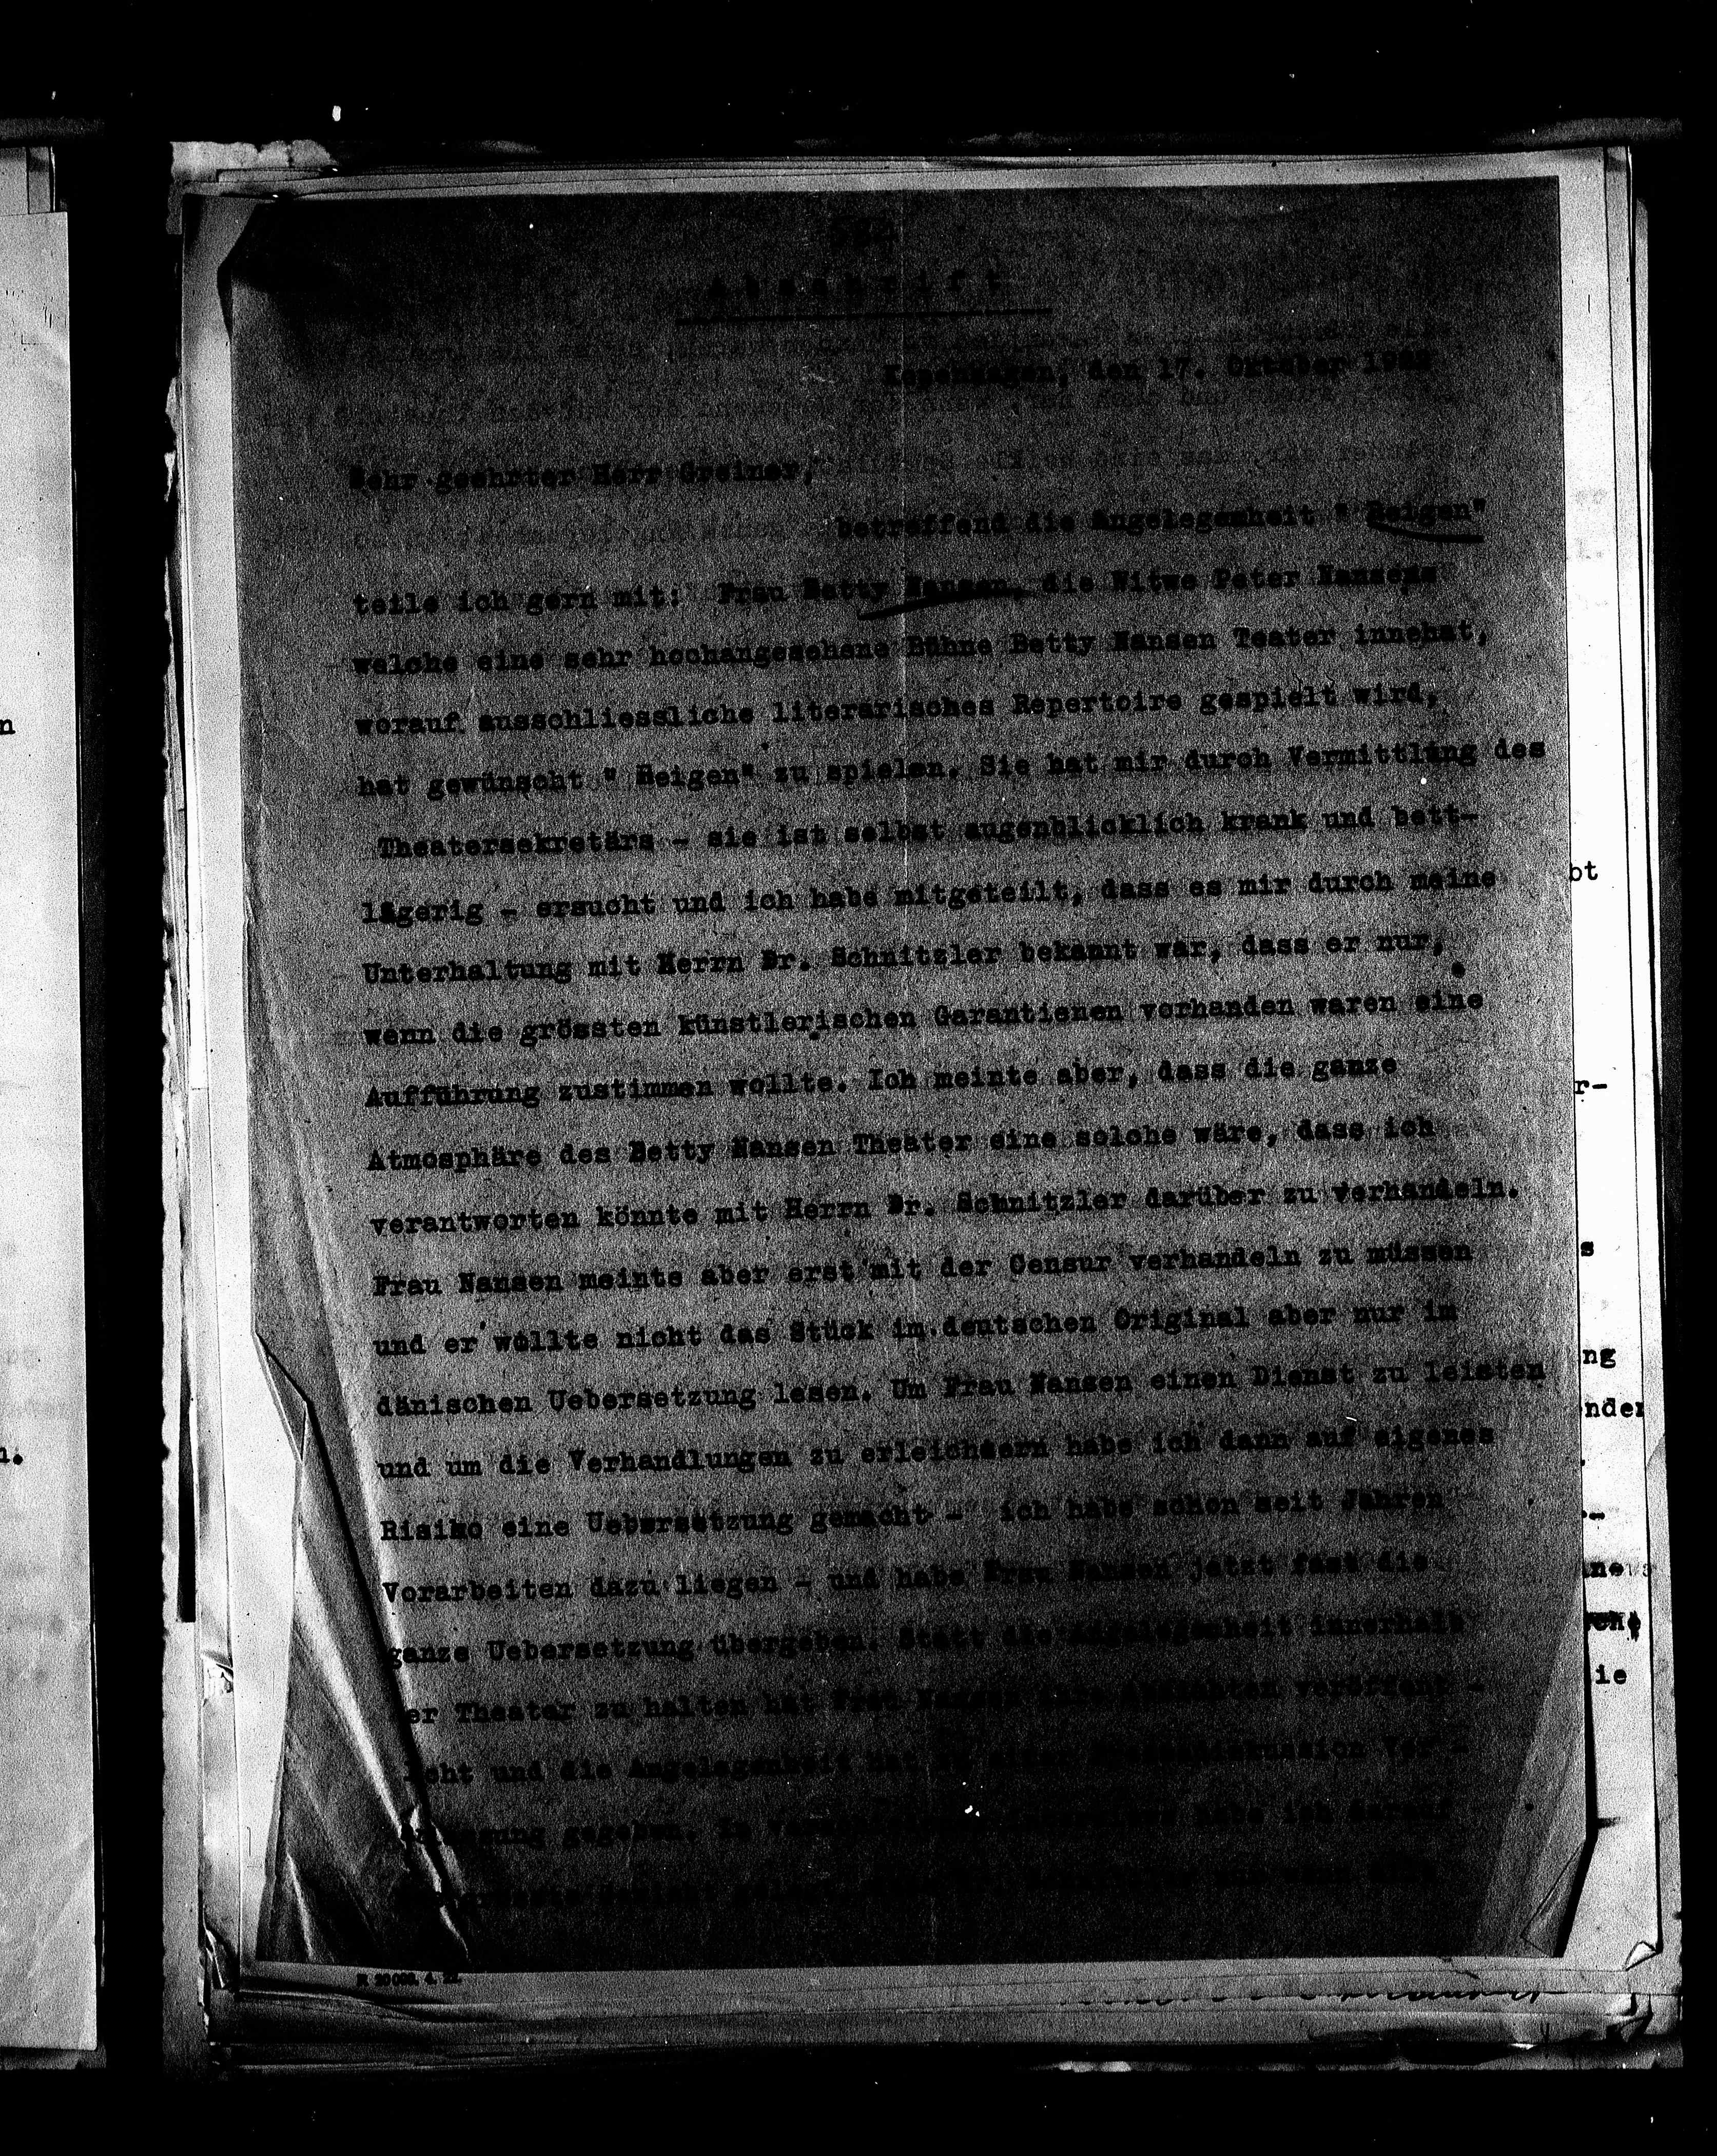 Abschrift
Kopenhagen, den 17. Oktober 1922
Sehr geehrter Herr Greiner,
betreffend die Angelegenheit " Reigen"
teile ich gern mit: Frau Betty Nansen, die Witwe Peter Nansens
welche eine sehr hochangesehene Bühne Betty Nansen Teater innehat,
worauf ausschliessliche literarisches Repertoire gespielt wird,
hat gewünscht " Reigen" zu spielen. Sie hat mir durch Vermittlung des
Theatersekretärs - sie ist selbst augenblicklich krank und bett-
lägerig - ersucht und ich habe mitgeteilt, dass es mir durch meine
Unterhaltung mit Herrn Dr. Schnitzler bekannt war, dass er nur,
wenn die grössten künstlerischen Garantienen vorhanden waren eine
Aufführung zustimmen wollte. Ich meinte aber, dass die ganze
Atmosphäre des Betty Nansen Theater eine solche wäre, dass ich
verantworten könnte mit Herrn Dr. Schnitzler darüber zu verhandeln.
Frau Nansen meinte aber erst mit der Censur verhandeln zu müssen
und er wollte nicht das Stück im deutschen Original aber nur im
dänischen Uebersetzung lesen. Um Frau Nansen einen Dienst zu leisten
und um die Verhandlungen zu erleichtern habe ich dann auf eigenes
Risiko eine Uebersetzung gemacht - ich habe schon seit Jahren
Vorarbeiten dazu liegen - und habe Frau Nansen jetzt fast die
ganze Uebersetzung übergeben. Statt die Angelegenheit innerhalb
er Theater zu halten hat Frau Nansen ihre Absichten veröffent -
icht und die Angelegenheit hat zu einer Pressediskussion Ver -
gegeben. In habe ich
R 20 000. 4. 22.
n
n.
bt
r-
s
ng
nder
ne
ie